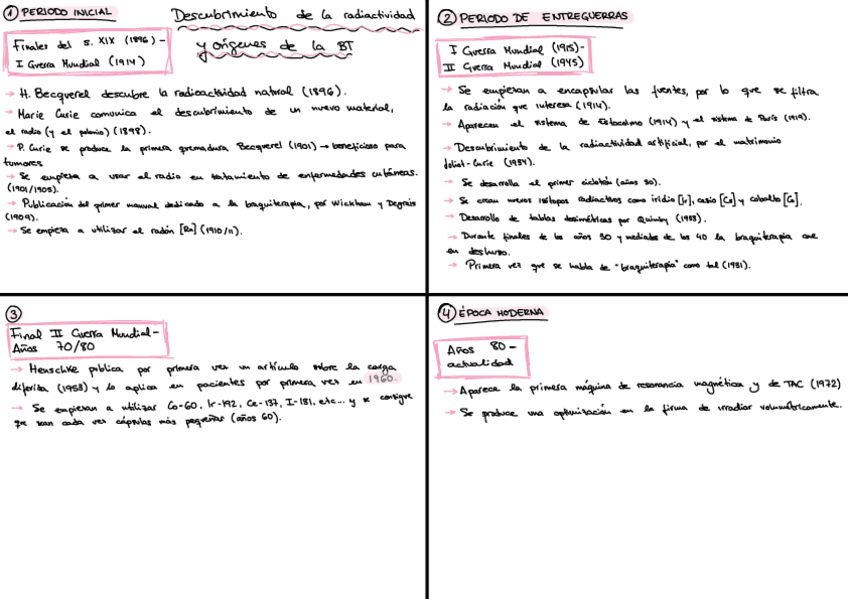 ① PERIODO INICIAL
Descubrimiento de la radiactividad
y orígenes de la BT
Finales del s. XIX (1896) -
I Guerra Mundial (1914)
→ H. Becquerel descubre la radioactividad natural (1896).
→ Marie Curie comunica el descubrimiento de un nuevo material,
el radio (y el polonio) (1898).
→ P. Curie se produce la primera quemadura Becquerel (1901) → beneficioso para
tumores
→ Se empieza a usar el radio en tratamiento de enfermedades cutáneas.
(1901/1905).
→ Publicación del primer manual dedicado a la braquiterapia, por Wickham y Degrais
(1909).
→ Se empieza a utilizar el radón [Rn] (1910/11).
② PERIODO DE ENTREGUERRAS
I Guerra Mundial (1915)-
II Guerra Mundial (1945)
→ Se empiezan a encapsular las fuentes, por lo que se filtra
la radiación que interesa (1914).
→ Aparecen el sistema de Estocolmo (1914) y el sistema de París (1919).
→ Descubrimiento de la radiactividad artificial, por el matrimonio
Joliot-Curie (1934).
→ Se desarrolla el primer ciclotrón (años 30).
→ Se crean nuevos isótopos radiactivos como iridio [Ir], cesio [Cs] y cobalto [Co].
→ Desarrollo de tablas dosimétricas por Quimby (1953).
→ Durante finales de los años 30 y mediados de los 40 la braquiterapia cae
en deshuso.
→ Primera vez que se habla de "braquiterapia" como tal (1931).
③
Final II Guerra Mundial-
Años 70/80
→ Henschke publica por primera vez un artículo sobre la carga
diferida (1953) y lo aplica en pacientes por primera vez en 1960.
→ Se empiezan a utilizar Co-60, Ir-192, Ce-137, I-131, etc... y se consigue
que sean cada vez cápsulas más pequeñas (años 60).
④ ÉPOCA MODERNA
Años 80 -
actualidad
→ Aparece la primera máquina de resonancia magnética y de TAC (1972)
→ Se produce una optimización en la firma de irradiar volumétricamente.